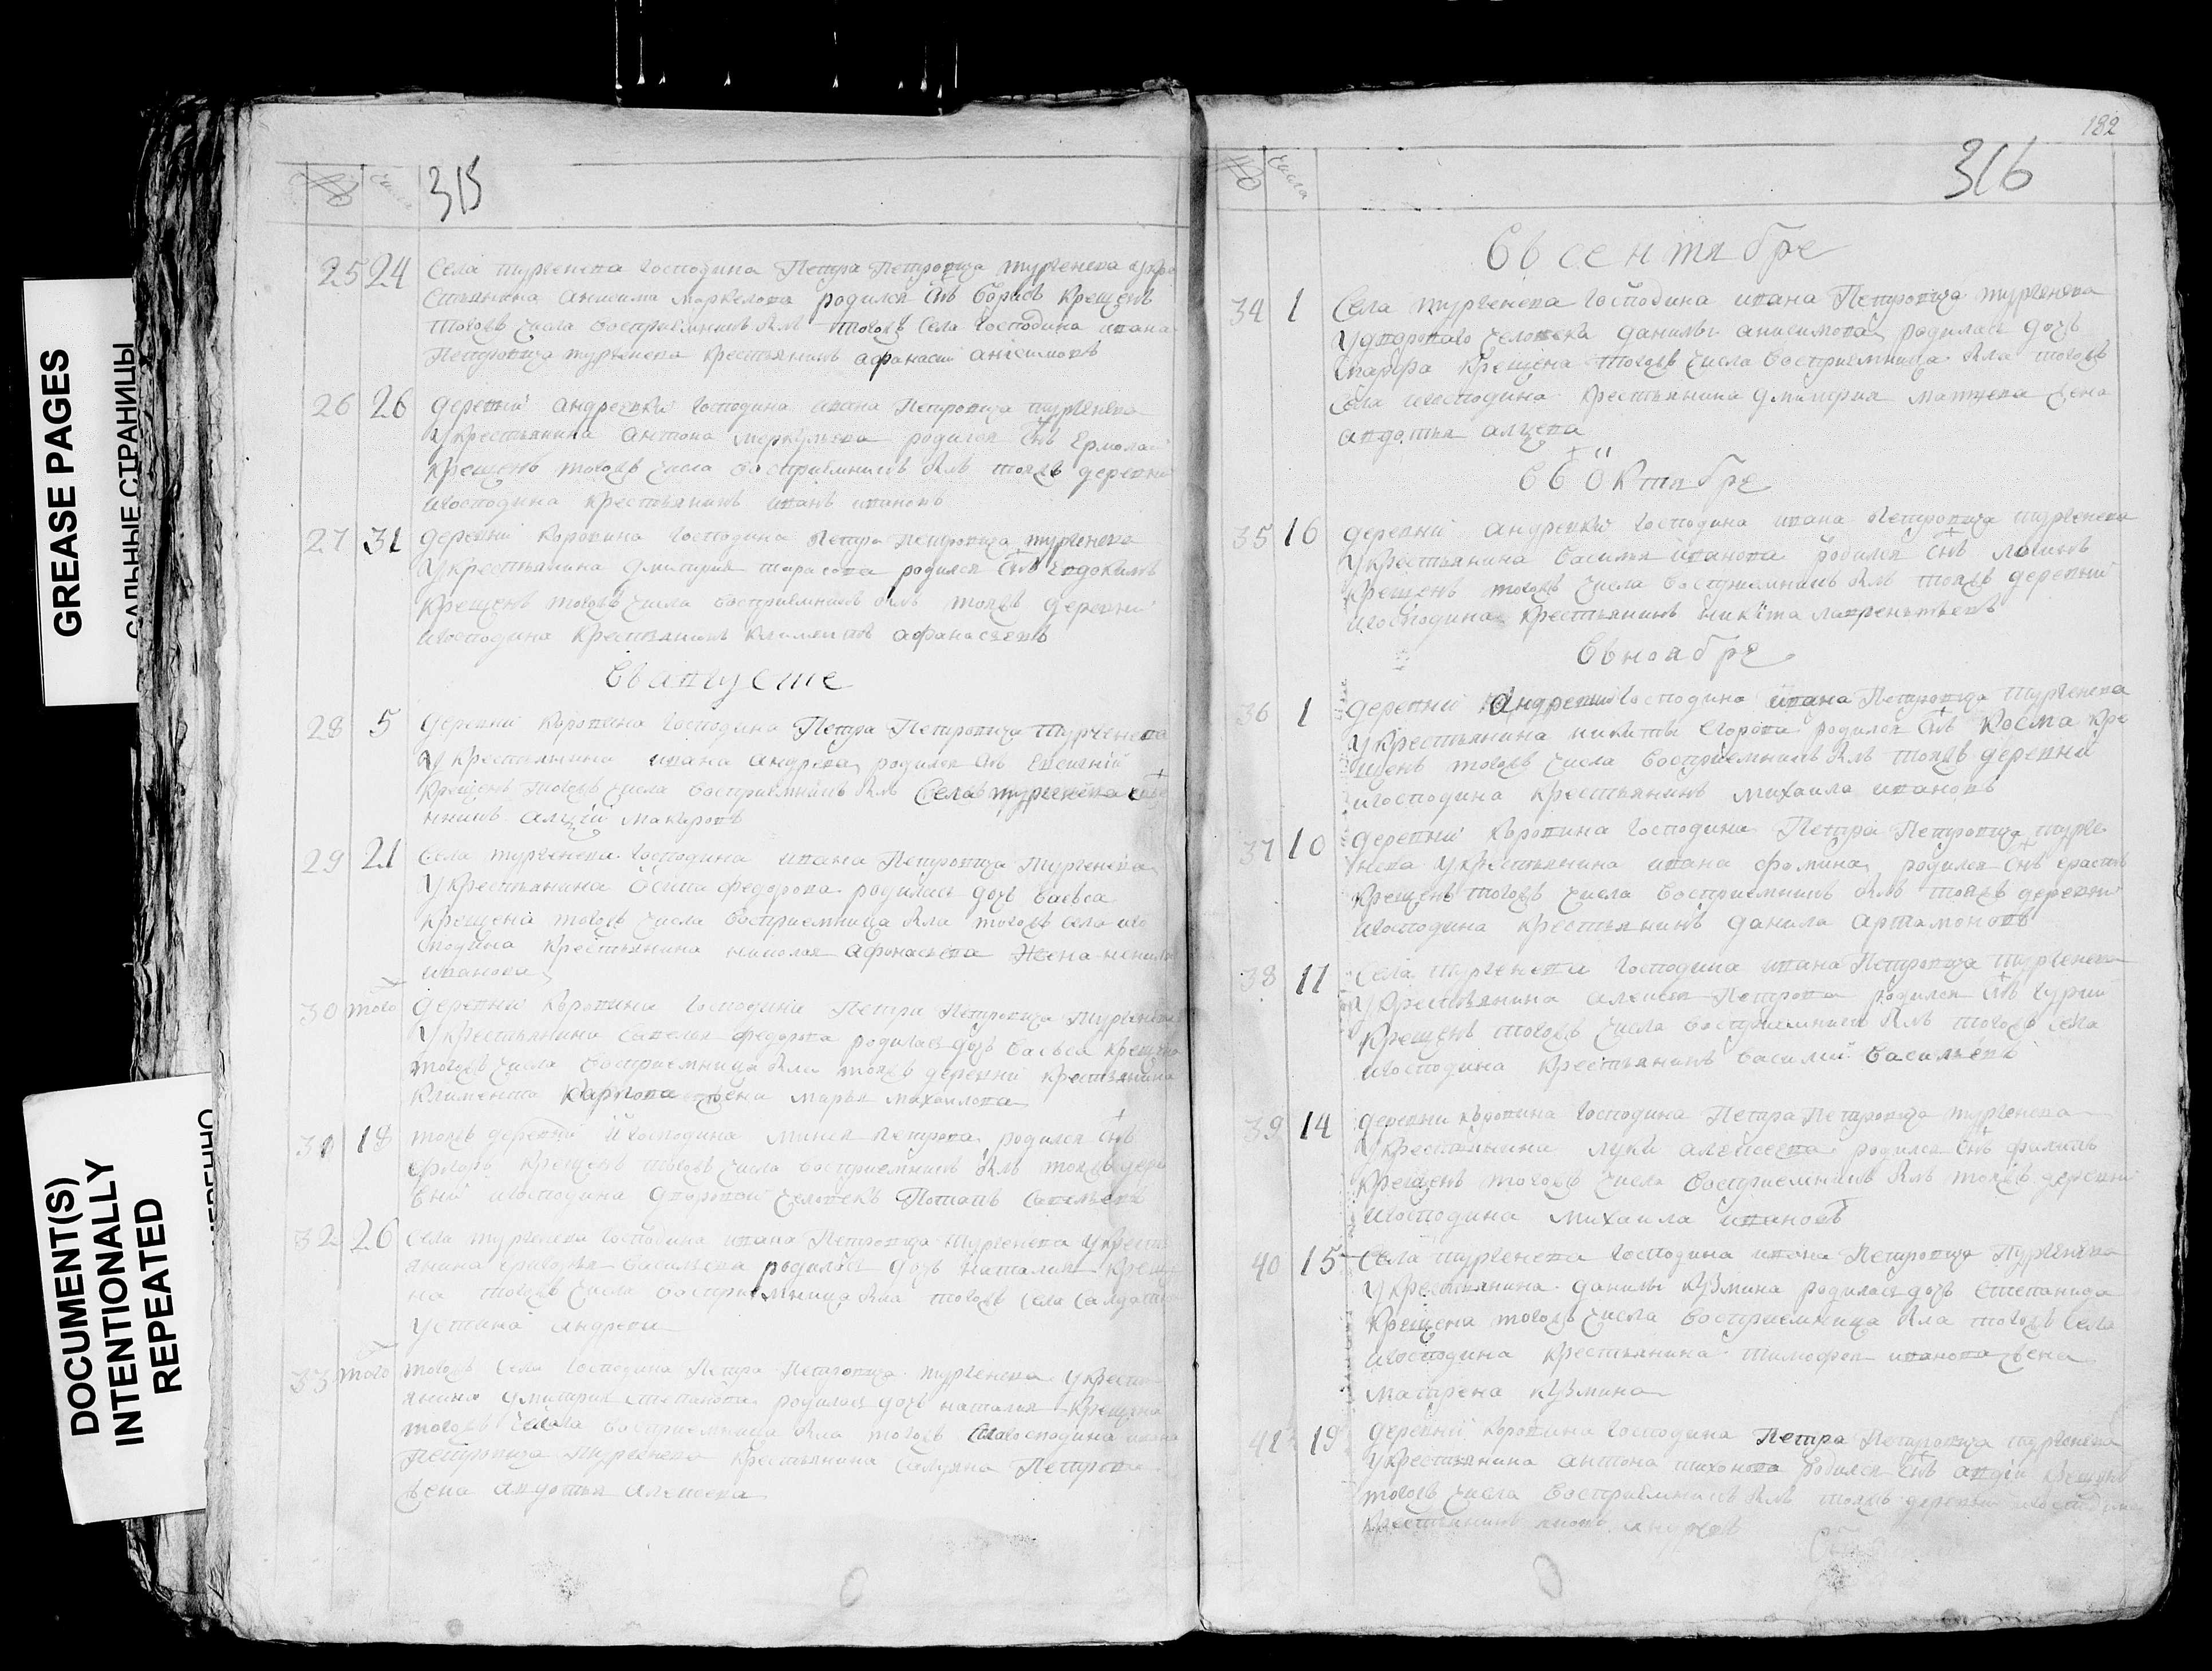 GREASE PAGES
САЛЬНЫЕ СТРАНИЦЫ
DOCUMENT(S)
INTENTIONALLY
REPEATED
№ числа 315
25 24 Села тургенева господина Петра Петровича тургенева у кре
стьянина анисима маркелова родился снъ борисъ крещенъ
тогожъ числа восприемникъ былъ тогожъ села господина ивана
Петровича тургенева крестьянинъ афанасий анисимовъ
26 26 деревни андреевки господина ивана Петровича тургенева
у крестьянина антона меркульева родился снъ Ермолай
крещенъ тогожъ числа восприемникъ былъ тояжъ деревни
игосподина крестьянинъ иванъ ивановъ
27 31 деревни коровина господина петра петровича тургенева
у крестьянина дмитрия тарасова родился снъ Евдокимъ
крещенъ тогожъ числа восприемникъ былъ тояжъ деревни
игосподина крестьянинъ климентъ афанасьевъ
Въ августе
28 5 деревни коровина господина Петра Петровича тургенева
у крестьянина ивана андреева родился снъ Евсигний
крещенъ тогожъ числа восприемникъ былъ Села тургенева
нникъ алексей макаровъ
29 21 Села тургенева господина ивана Петровича тургенева
у крестьянина осипа федорова родилась дочь васьса
крещена тогожъ числа восприемница была тогожъ села иго
сподина крестьянина николая афонасьева жена
иванова
30 того деревни коровина господина Петра Петровича тургенева
у крестьянина савелья федорова родилась дочь васьса крещена
тогожъ числа восприемница была тояжъ деревни крестьянина
климента карпова жена марья михаилова
31 18 тояжъ деревни игосподина петрова родился снъ
флоръ крещенъ тогожъ числа восприемникъ былъ тояжъ дере
вни игосподина дворовой человекъ Потапъ савельевъ
32 26 Села тургенева господина ивана Петровича тургенева у кресть
янина григорья васильева родилась дочь наталия креще
на тогожъ числа восприемница была тогожъ села салдатка
устина андреева
33 того тогожъ села господина Петра Петровича тургенева у кресть
янина дмитрия степанова родилась дочь наталия крещена
тогожъ числа восприемница была тогожъ села господина ивана
Петровича тургенева крестьянина Петрова
жена авдотья алексеева
182
№ числа 316
Въ сентябре
34 1 Села тургенева господина ивана Петровича тургенева
у двороваго человека данилы анисимова родилась дочь
марфа крещена тогожъ числа восприемница была тогожъ
села игосподина крестьянина дмитрия матвеева жена
авдотья
Въ октябре
35 16 деревни андреевки господина ивана петровича тургенева
у крестьянина василья иванова родился снъ логинъ
крещенъ тогожъ числа восприемникъ былъ тояжъ деревни
игосподина крестьянинъ никита лаврентьевъ
Въ ноябре
36 1 деревни андреевки господина ивана Петровича тургенева
у крестьянина никиты Егорова родился снъ Косма кре
щенъ тогожъ числа восприемникъ былъ тояжъ деревни
игосподина крестьянинъ михаила ивановъ
37 10 деревни коровина господина Петра Петровича турге
нева у крестьянина ивана фомина родился снъ ерастъ
крещенъ тогожъ числа восприемникъ былъ тояжъ деревни
игосподина крестьянинъ данила артамоновъ
38 11 Села тургенева господина ивана Петровича тургенева
у крестьянина алексея Петрова родился снъ гурий
крещенъ тогожъ числа восприемникъ былъ тогожъ села
игосподина крестьянинъ василий васильевъ
39 14 деревни коровина господина Петра Петровича тургенева
у крестьянина луки алексеева родился снъ филипъ
крещенъ тогожъ числа восприемникъ былъ тояжъ деревни
игосподина михаила ивановъ
40 15 Села тургенева господина ивана Петровича тургенева
у крестьянина данилы кузмина родилась дочь степанида
крещена тогожъ числа восприемница была тогожъ села
игосподина крестьянина тимофея иванова жена
матрена кузмина
41 19 деревни коровина господина Петра Петровича тургенева
у крестьянина антона тихонова родился снъ авдий крещенъ
тогожъ числа восприемникъ былъ тояжъ деревни игосподина
крестьянинъ